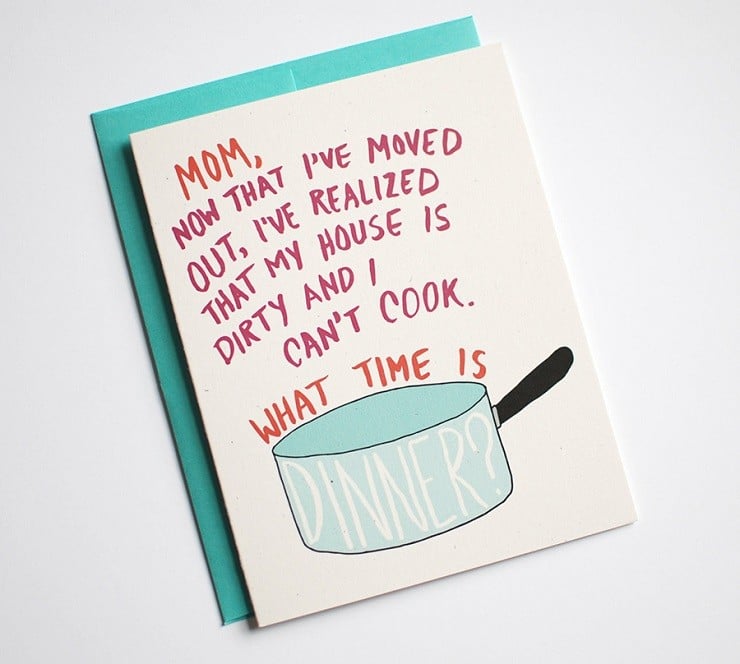 MOM,
NOW THAT I'VE MOVED
OUT, I'VE REALIZED
THAT MY HOUSE IS
DIRTY AND I
CAN'T COOK.
WHAT TIME IS
DINNER?